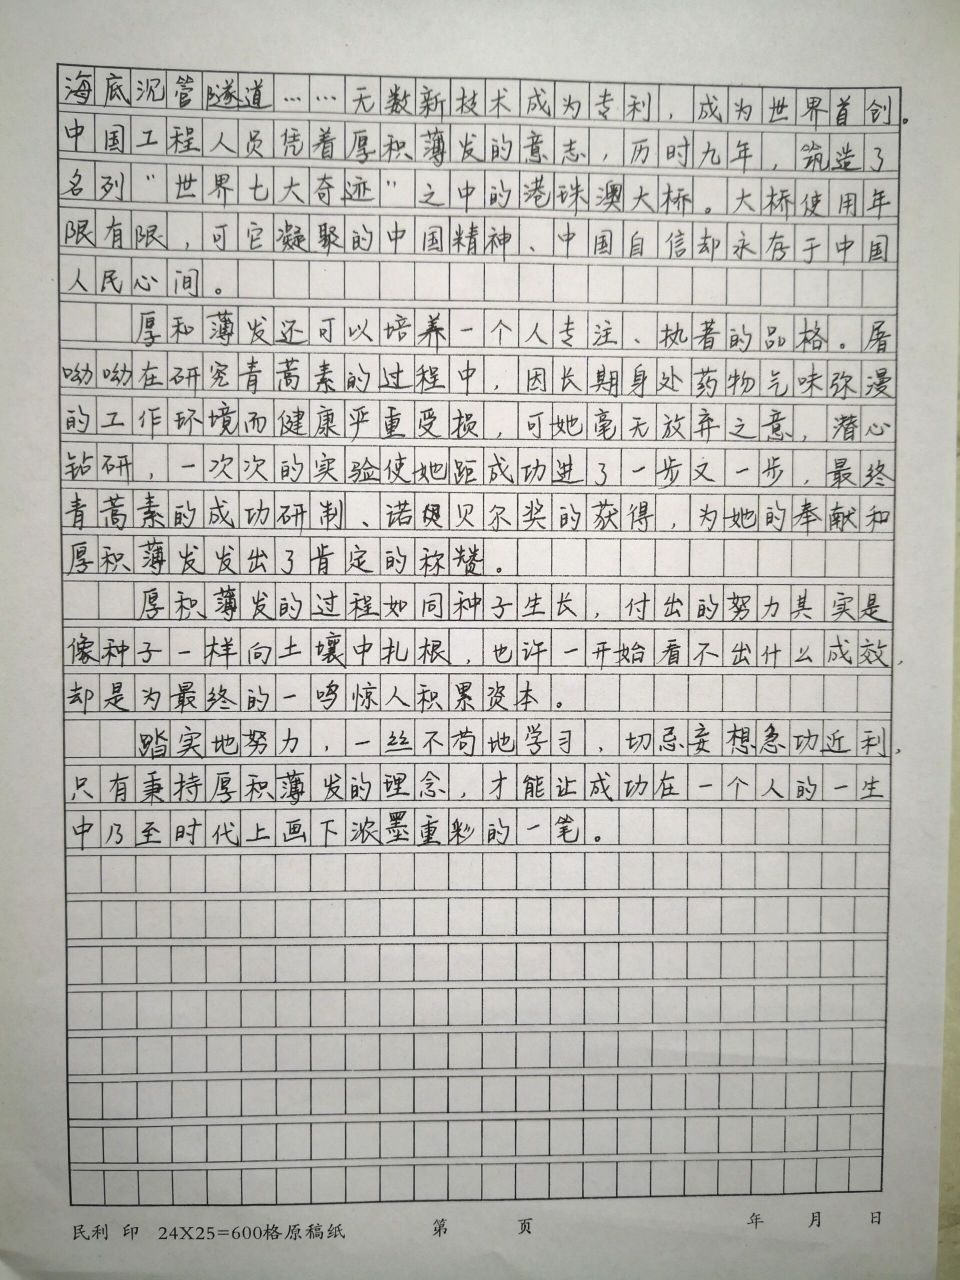 海底沉管隧道……无数新技术成为专利，成为世界首创。
中国工程人员凭着厚积薄发的意志，历时九年，筑造了
名列“世界七大奇迹”之中的港珠澳大桥。大桥使用年
限有限，可它凝聚的中国精神、中国自信却永存于中国
人民心间。
厚和薄发还可以培养一个人专注、执著的品格。屠
呦呦在研究青蒿素的过程中，因长期身处药物气味弥漫
的工作环境而健康严重受损，可她毫无放弃之意，潜心
钻研，一次次的实验使她距成功进了一步又一步，最终
青蒿素的成功研制、诺贝尔奖的获得，为她的奉献和
厚积薄发发出了肯定的称赞。
厚积薄发的过程如同种子生长，付出的努力其实是
像种子一样向土壤中扎根，也许一开始看不出什么成效，
却是为最终的一鸣惊人积累资本。
踏实地努力，一丝不苟地学习，切忌妄想急功近利，
只有秉持厚积薄发的理念，才能让成功在一个人的一生
中乃至时代上画下浓墨重彩的一笔。
民利 印 24X25=600格原稿纸 第 页 年 月 日